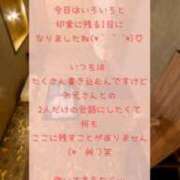 今日はいろいろと
印象に残る1日に
なりましたね(*´˘`*)♡
いつもは
たくさん書き込むんですけど
お兄さんとの
2人だけの会話にしたくて
何も
ここに残すことがありません
(*´艸`)笑